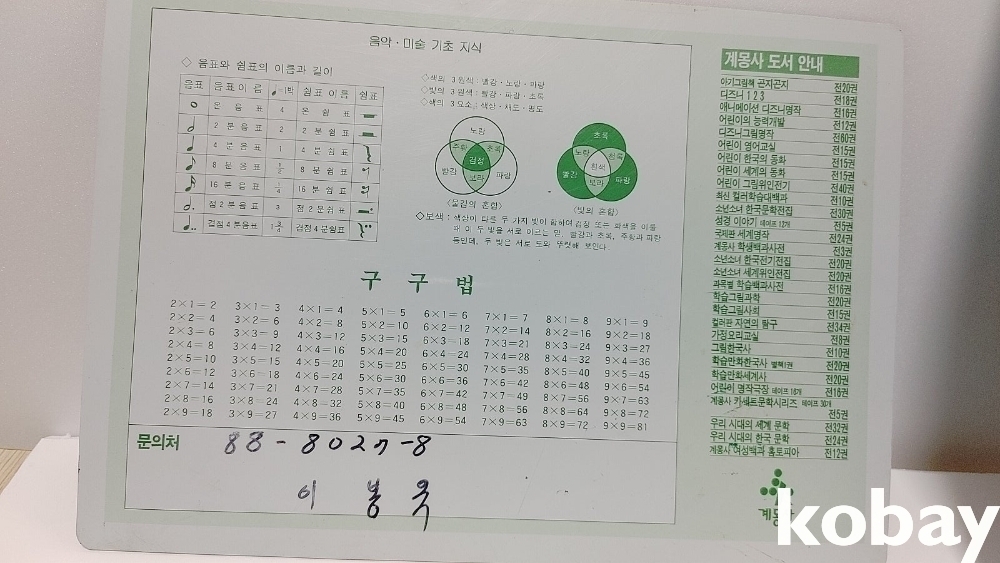 음악·미술 기초 지식
◇ 음표와 쉼표의 이름과 길이
음표 음표이름 ♩=1박 쉼표이름 쉼표
온 음 표 4 온 쉼 표
2 분 음 표 2 2 분 쉼 표
4 분 음 표 1 4 분 쉼 표
8 분 음 표 1/2 8 분 쉼 표
16 분 음 표 1/4 16 분 쉼 표
점 2 분 음 표 3 점 2 분 쉼 표
겹점 4 분음표 1 3/4 겹점 4 분쉼표
◇색의 3 원색 : 빨강·노랑·파랑
◇빛의 3 원색 : 빨강·파랑·초록
◇색의 3 요소 : 색상·채도·명도
노랑
주황 초록
검정
빨강 보라 파랑
〈물감의 혼합〉
초록
노랑 청록
흰색
빨강 보라 파랑
〈빛의 혼합〉
◇보색 : 색상이 다른 두 가지 빛이 합하여 검정 또는 회색을 이룰
때 이 두 빛을 서로 이르는 말. 빨강과 초록, 주황과 파랑
등인데, 두 빛은 서로 도와 뚜렷해 보인다.
구 구 법
2×1= 2 3×1= 3 4×1= 4 5×1= 5 6×1= 6 7×1= 7 8×1= 8 9×1= 9
2×2= 4 3×2= 6 4×2= 8 5×2=10 6×2=12 7×2=14 8×2=16 9×2=18
2×3= 6 3×3= 9 4×3=12 5×3=15 6×3=18 7×3=21 8×3=24 9×3=27
2×4= 8 3×4=12 4×4=16 5×4=20 6×4=24 7×4=28 8×4=32 9×4=36
2×5=10 3×5=15 4×5=20 5×5=25 6×5=30 7×5=35 8×5=40 9×5=45
2×6=12 3×6=18 4×6=24 5×6=30 6×6=36 7×6=42 8×6=48 9×6=54
2×7=14 3×7=21 4×7=28 5×7=35 6×7=42 7×7=49 8×7=56 9×7=63
2×8=16 3×8=24 4×8=32 5×8=40 6×8=48 7×8=56 8×8=64 9×8=72
2×9=18 3×9=27 4×9=36 5×9=45 6×9=54 7×9=63 8×9=72 9×9=81
문의처 88-8027-8
이 봉 옥
계몽사 도서 안내
아기그림책 곤지곤지 전20권
디즈니 1 2 3 전18권
애니메이션 디즈니명작 전16권
어린이의 능력개발 전12권
디즈니그림명작 전60권
어린이 영어교실 전15권
어린이 한국의 동화 전15권
어린이 세계의 동화 전15권
어린이 그림위인전기 전40권
최신 컬러학습대백과 전10권
소년소녀 한국문학전집 전30권
성경 이야기 테이프 12개 전5권
국제판 세계명작 전24권
계몽사 학생백과사전 전3권
소년소녀 한국전기전집 전20권
소년소녀 세계위인전집 전20권
과목별 학습백과사전 전16권
학습그림과학 전20권
학습그림사회 전15권
컬러판 자연의 탐구 전34권
가정요리교실 전8권
그림한국사 전10권
학습만화한국사 별책1권 전20권
학습만화세계사 전20권
어린이 명작극장 테이프 16개 전16권
계몽사 카세트문학시리즈 테이프 30개
전5권
우리 시대의 세계 문학 전32권
우리 시대의 한국 문학 전24권
계몽사 여성백과 홈토피아 전12권
계몽
kobay